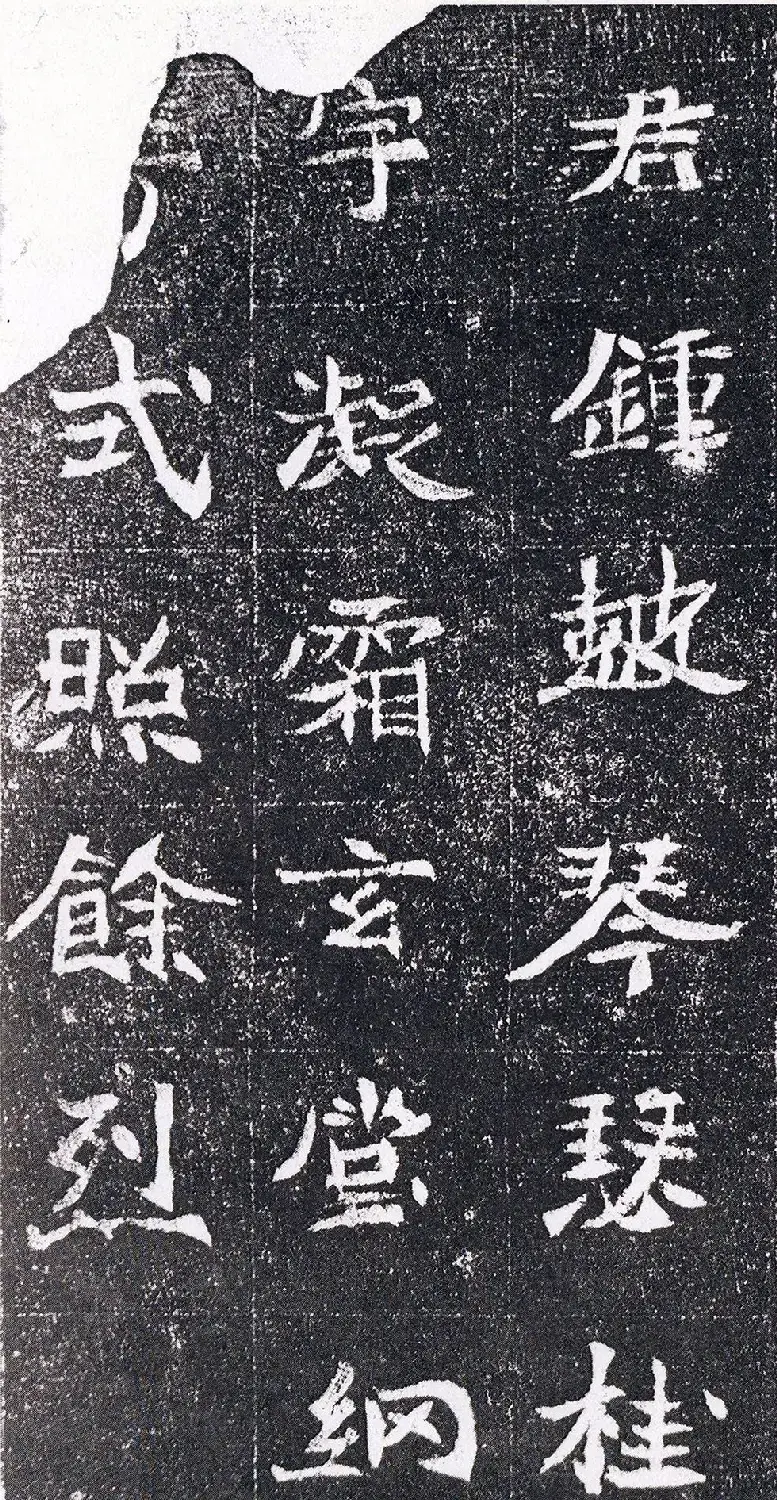 君鍾皷琴瑟桂
宇凝霜玄堂網
式照餘烈